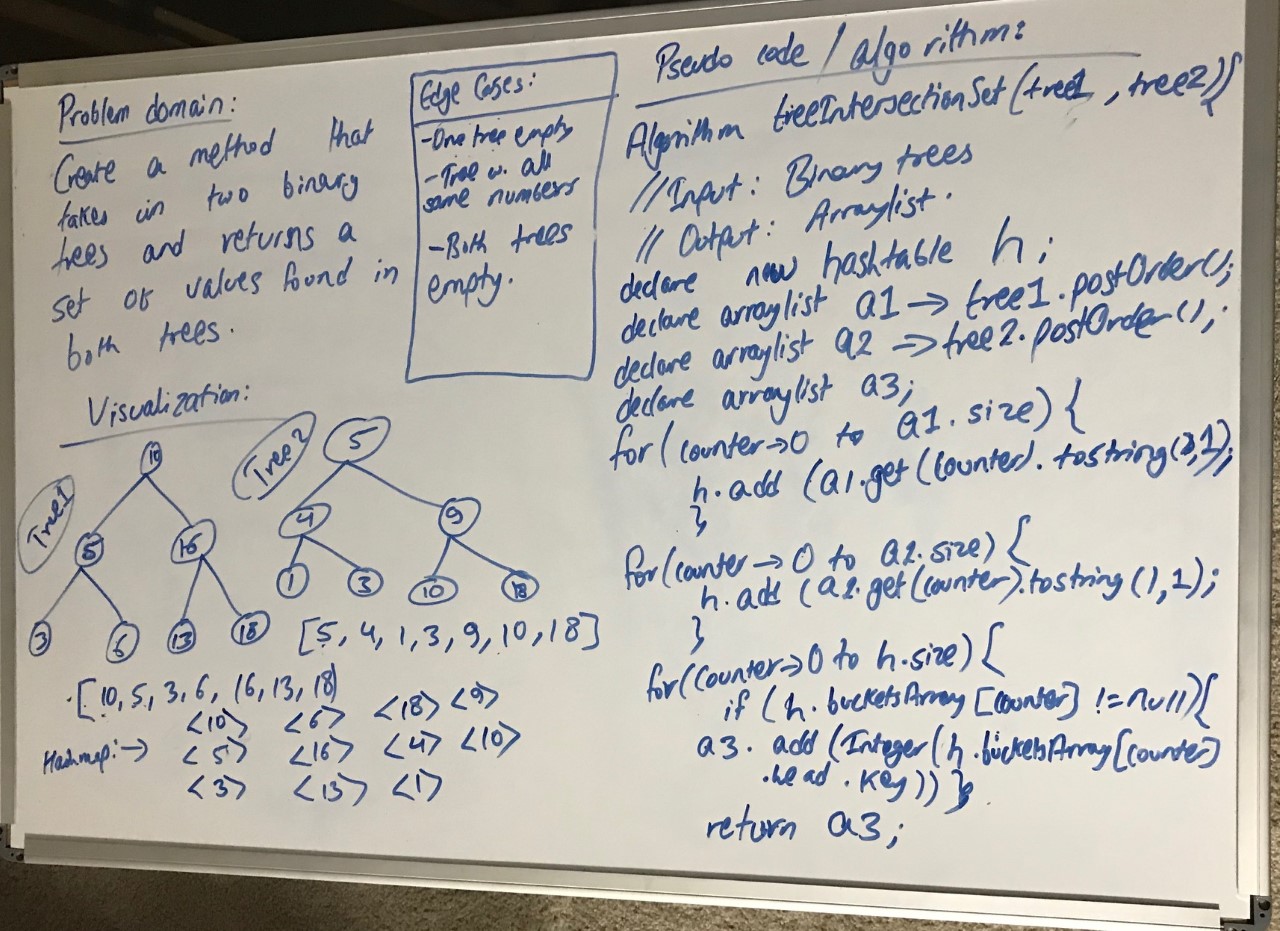 Problem domain:
Create a method that
takes in two binary
trees and returns a
set of values found in
both trees.
Edge Cases:
-One tree empty
-Tree w. all
same numbers
-Both trees
empty.
Visualization:
Tree1
10
5
16
3
6
13
18
Tree2
5
4
9
1
3
10
18
[5, 4, 1, 3, 9, 10, 18]
[10, 5, 3, 6, 16, 13, 18]
<10> <6> <18> <9>
Hashmap:→ <5> <16> <4> <10>
<3> <13> <1>
Pseudo code / algorithm:
Algorithm treeIntersectionSet(tree1, tree2){
//Input: Binary trees
// Output: Arraylist.
declare new hashtable h;
declare arraylist a1 → tree1.postOrder();
declare arraylist a2 → tree2.postOrder();
declare arraylist a3;
for (counter→0 to a1.size) {
h.add (a1.get(counter).tostring(),1);
}
for(counter→0 to a2.size) {
h.add (a2.get(counter).tostring(),1);
}
for(counter→0 to h.size) {
if (h.bucketsArray[counter] != null){
a3.add(Integer(h.bucketsArray[counter]
.head.key)) }
return a3;